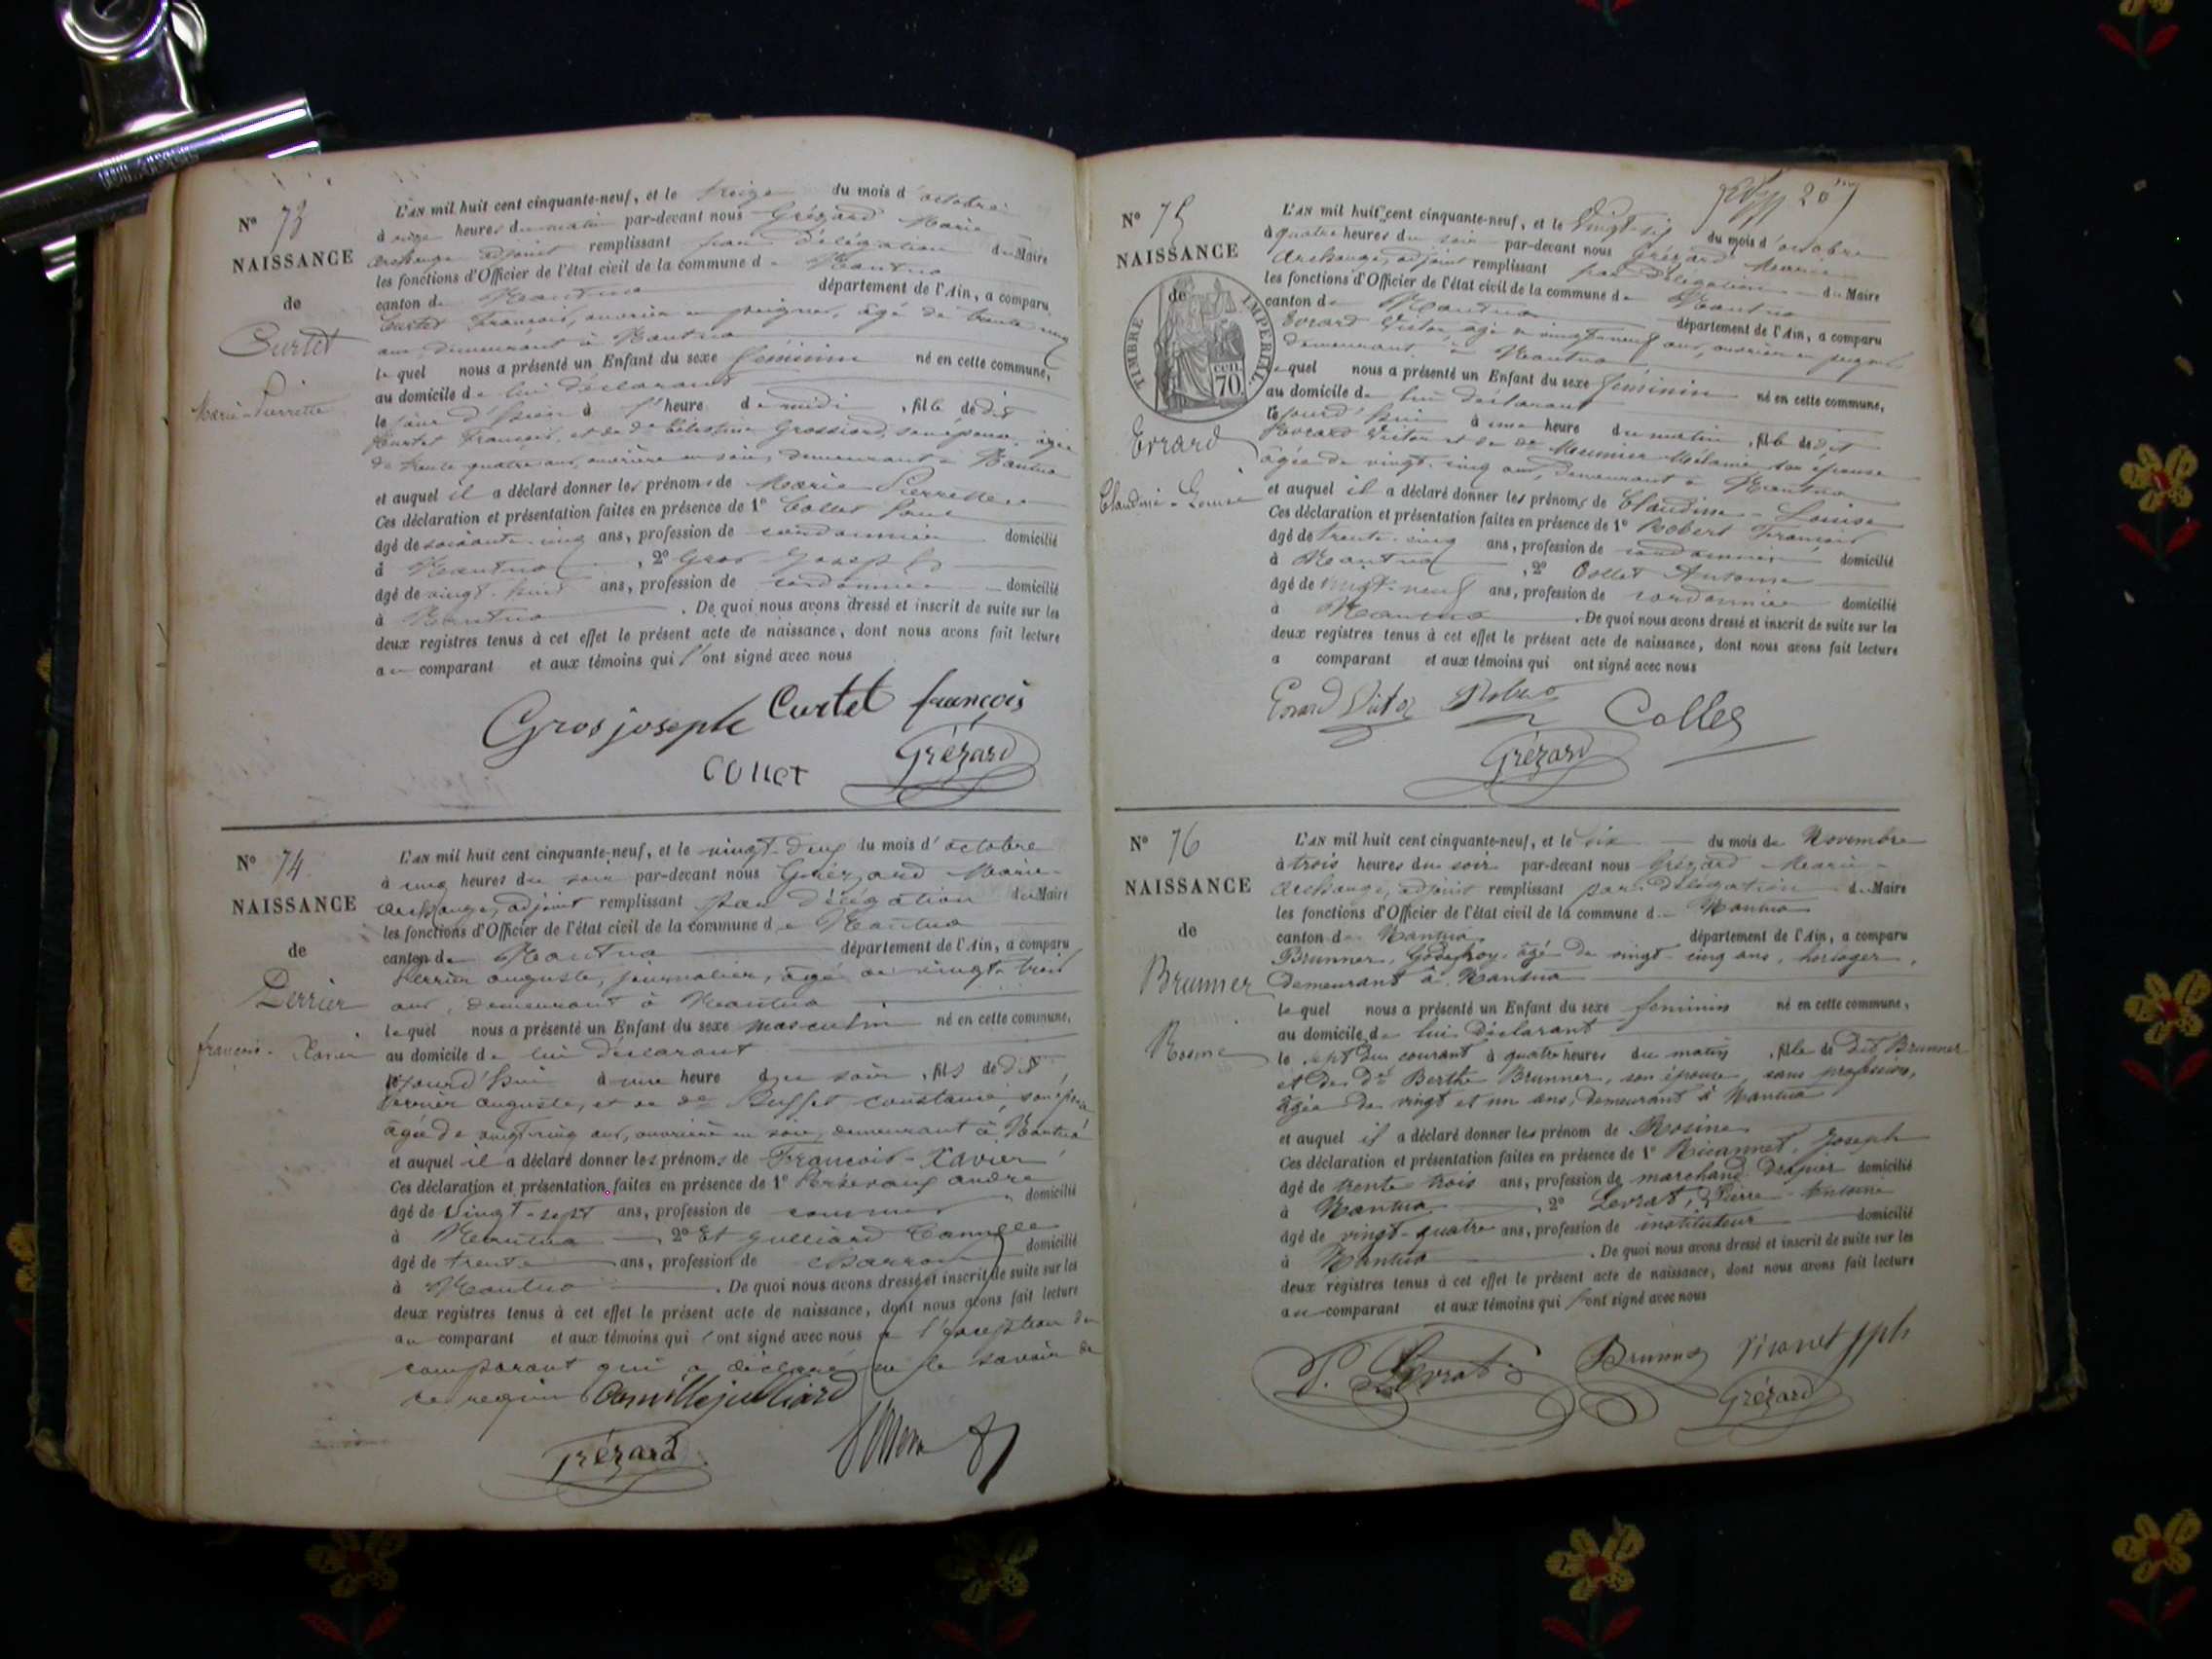 N° 73
NAISSANCE
de
Curtet
Marie-Pierrette
L'AN mil huit cent cinquante-neuf, et le treize du mois d'octobre
à onze heures du matin par-devant nous Grézard Marie
Archange adjoint remplissant par délégation du Maire
les fonctions d'Officier de l'état civil de la commune de Nantua
canton de Nantua département de l'Ain, a comparu
Curtet François, ouvrier en peignes, âgé de trente cinq
ans, demeurant à Nantua
lequel nous a présenté un Enfant du sexe féminin né en cette commune,
au domicile de lui déclarant
le jour d'hier à l'heure de midi, fille de dit
Curtet François, et de de Célestine Grossiord, son épouse, âgée
de trente quatre ans, ouvrière en soie, demeurant à Nantua
et auquel il a déclaré donner les prénoms de Marie Pierrette
Ces déclaration et présentation faites en présence de 1° Collet
âgé de soixante-cinq ans, profession de cordonnier domicilié
à Nantua, 2° Gros Joseph
âgé de vingt-huit ans, profession de cordonnier domicilié
à Nantua. De quoi nous avons dressé et inscrit de suite sur les
deux registres tenus à cet effet le présent acte de naissance, dont nous avons fait lecture
au comparant et aux témoins qui l'ont signé avec nous
Curtet françois
Gros joseph
Collet Grézard
N° 74
NAISSANCE
de
Perrier
françois-Xavier
L'AN mil huit cent cinquante-neuf, et le vingt-deux du mois d'octobre
à cinq heures du soir par-devant nous Grézard Marie-
Archange, adjoint remplissant par délégation du Maire
les fonctions d'Officier de l'état civil de la commune de Nantua
canton de Nantua département de l'Ain, a comparu
Perrier auguste, journalier, âgé de vingt-trois
ans, demeurant à Nantua
lequel nous a présenté un Enfant du sexe masculin né en cette commune,
au domicile de lui déclarant
lejourd'hui à une heure du soir, fils de dit
Perrier auguste, et de de Buffet constance, son épouse
âgée de vingt-cinq ans, ouvrière en soie, demeurant à Nantua
et auquel il a déclaré donner les prénoms de François-Xavier
Ces déclaration et présentation faites en présence de 1° andré
âgé de vingt-sept ans, profession de domicilié
à Nantua, 2° Et Julliard Camille
âgé de trente ans, profession de charron domicilié
à Nantua. De quoi nous avons dressé et inscrit de suite sur les
deux registres tenus à cet effet le présent acte de naissance, dont nous avons fait lecture
au comparant et aux témoins qui l'ont signé avec nous à l'exception du
comparant qui a déclaré ne le savoir de
ce requis Camille julliard
Grézard
N° 75
NAISSANCE
de
TIMBRE IMPERIAL
CEN. 70
Evrard
Claudine-Louise
L'AN mil huit cent cinquante-neuf, et le Vingt-six du mois d'octobre
à quatre heures du soir par-devant nous Grézard Marie
Archange, adjoint remplissant par délégation du Maire
les fonctions d'Officier de l'état civil de la commune de Nantua
canton de Nantua département de l'Ain, a comparu
Evrard Victor, âgé de vingt neuf ans, ouvrier en peignes
demeurant à Nantua
lequel nous a présenté un Enfant du sexe féminin né en cette commune,
au domicile de lui déclarant
lejourd'hui à une heure du matin, fille de dit
Evrard Victor et de de Meunier Mélanie son épouse
âgée de vingt-cinq ans, demeurant à Nantua
et auquel il a déclaré donner les prénoms de Claudine-Louise
Ces déclaration et présentation faites en présence de 1° Robert François
âgé de trente-cinq ans, profession de cordonnier domicilié
à Nantua, 2° Collet Antoine
âgé de vingt-neuf ans, profession de cordonnier domicilié
à Nantua. De quoi nous avons dressé et inscrit de suite sur les
deux registres tenus à cet effet le présent acte de naissance, dont nous avons fait lecture
a comparant et aux témoins qui ont signé avec nous
Evrard Victor Robert Collet
Grézard
N° 76
NAISSANCE
de
Brunner
Rosine
L'AN mil huit cent cinquante-neuf, et le dix du mois de Novembre
à trois heures du soir par-devant nous Grézard Marie-
Archange, adjoint remplissant par délégation du Maire
les fonctions d'Officier de l'état civil de la commune de Nantua
canton de Nantua département de l'Ain, a comparu
Brunner, Godefroy, âgé de vingt-cinq ans, horloger,
demeurant à Nantua
lequel nous a présenté un Enfant du sexe feminin né en cette commune,
au domicile de lui Déclarant
le sept du courant à quatre heures du matin, fille de Dit Brunner
et de de Berthe Brunner, son épouse, sans profession,
âgée de vingt et un ans, demeurant à Nantua
et auquel il a déclaré donner les prénom de Rosine
Ces déclaration et présentation faites en présence de 1° Joseph
âgé de trente trois ans, profession de marchand Drapier domicilié
à Nantua, 2° Levrat, Pierre-Antoine
âgé de vingt-quatre ans, profession de instituteur domicilié
à Nantua. De quoi nous avons dressé et inscrit de suite sur les
deux registres tenus à cet effet le présent acte de naissance, dont nous avons fait lecture
au comparant et aux témoins qui l'ont signé avec nous
P. Levrat Brunner
Grézard